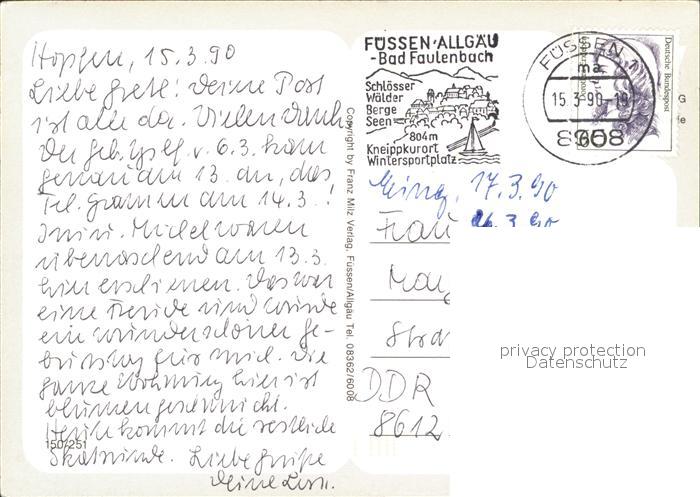 Hopfen, 15.3.90
Liebe Gretl! Deine Post
ist alle da. Vielen Dank
Der geb. v. 6.3. kam
genau am 13. an, das
Telegramm am 14.3.!
Michel waren
überraschend am 13.3.
hier erschienen. Das war
eine Freude und wurde
ein wunderschöner Ge-
burtstag für mich. Die
ganze Wohnung hier ist
blumengeschmückt.
Heute kommt die restliche
Skatrunde. Liebe Grüße
Deine
150/251
Copyright by Franz Milz Verlag, Füssen/Allgäu Tel. 08362/6008
FÜSSEN·ALLGÄU
-Bad Faulenbach
Schlösser
Wälder
Berge
Seen
804m
Kneippkurort
Wintersportplatz
FÜSSEN 1
ma
15.3.90-19
8958
Deutsche Bundespost
60
Eing. 17.3.90
16.3.90
Frau
Mar
Stra
DDR
8612
G
e
privacy protection
Datenschutz